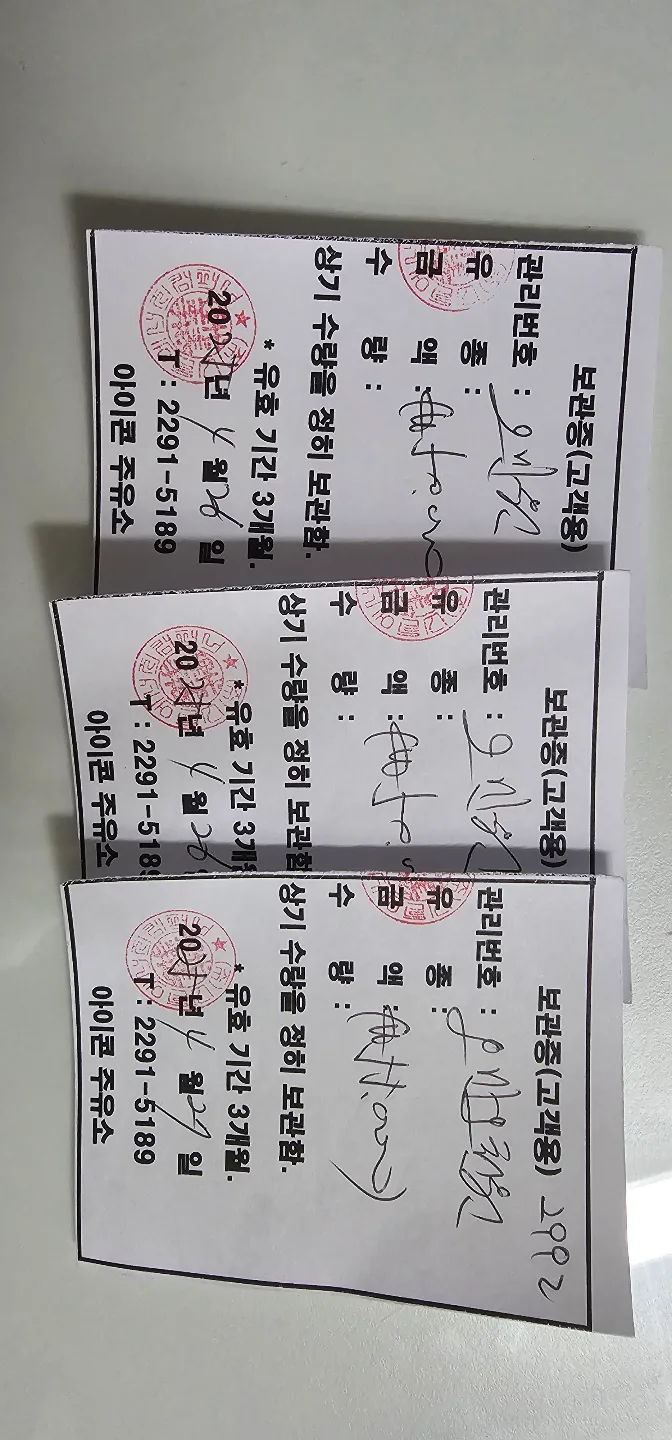 보관증(고객용)
관리번호 :
유 종 :
금 액 :
수 량 :
상기 수량을 정히 보관함.
* 유효 기간 3개월.
20 년 4 월 26 일
T : 2291-5189
아이콘 주유소
보관증(고객용)
관리번호 :
유 종 :
금 액 :
수 량 :
상기 수량을 정히 보관함
* 유효 기간 3개월
20 년 4 월 26
T : 2291-5189
아이콘 주유소
보관증(고객용) 2992
관리번호 :
유 종 :
금 액 :
수 량 :
상기 수량을 정히 보관함.
* 유효 기간 3개월.
20 년 4 월 29 일
T : 2291-5189
아이콘 주유소